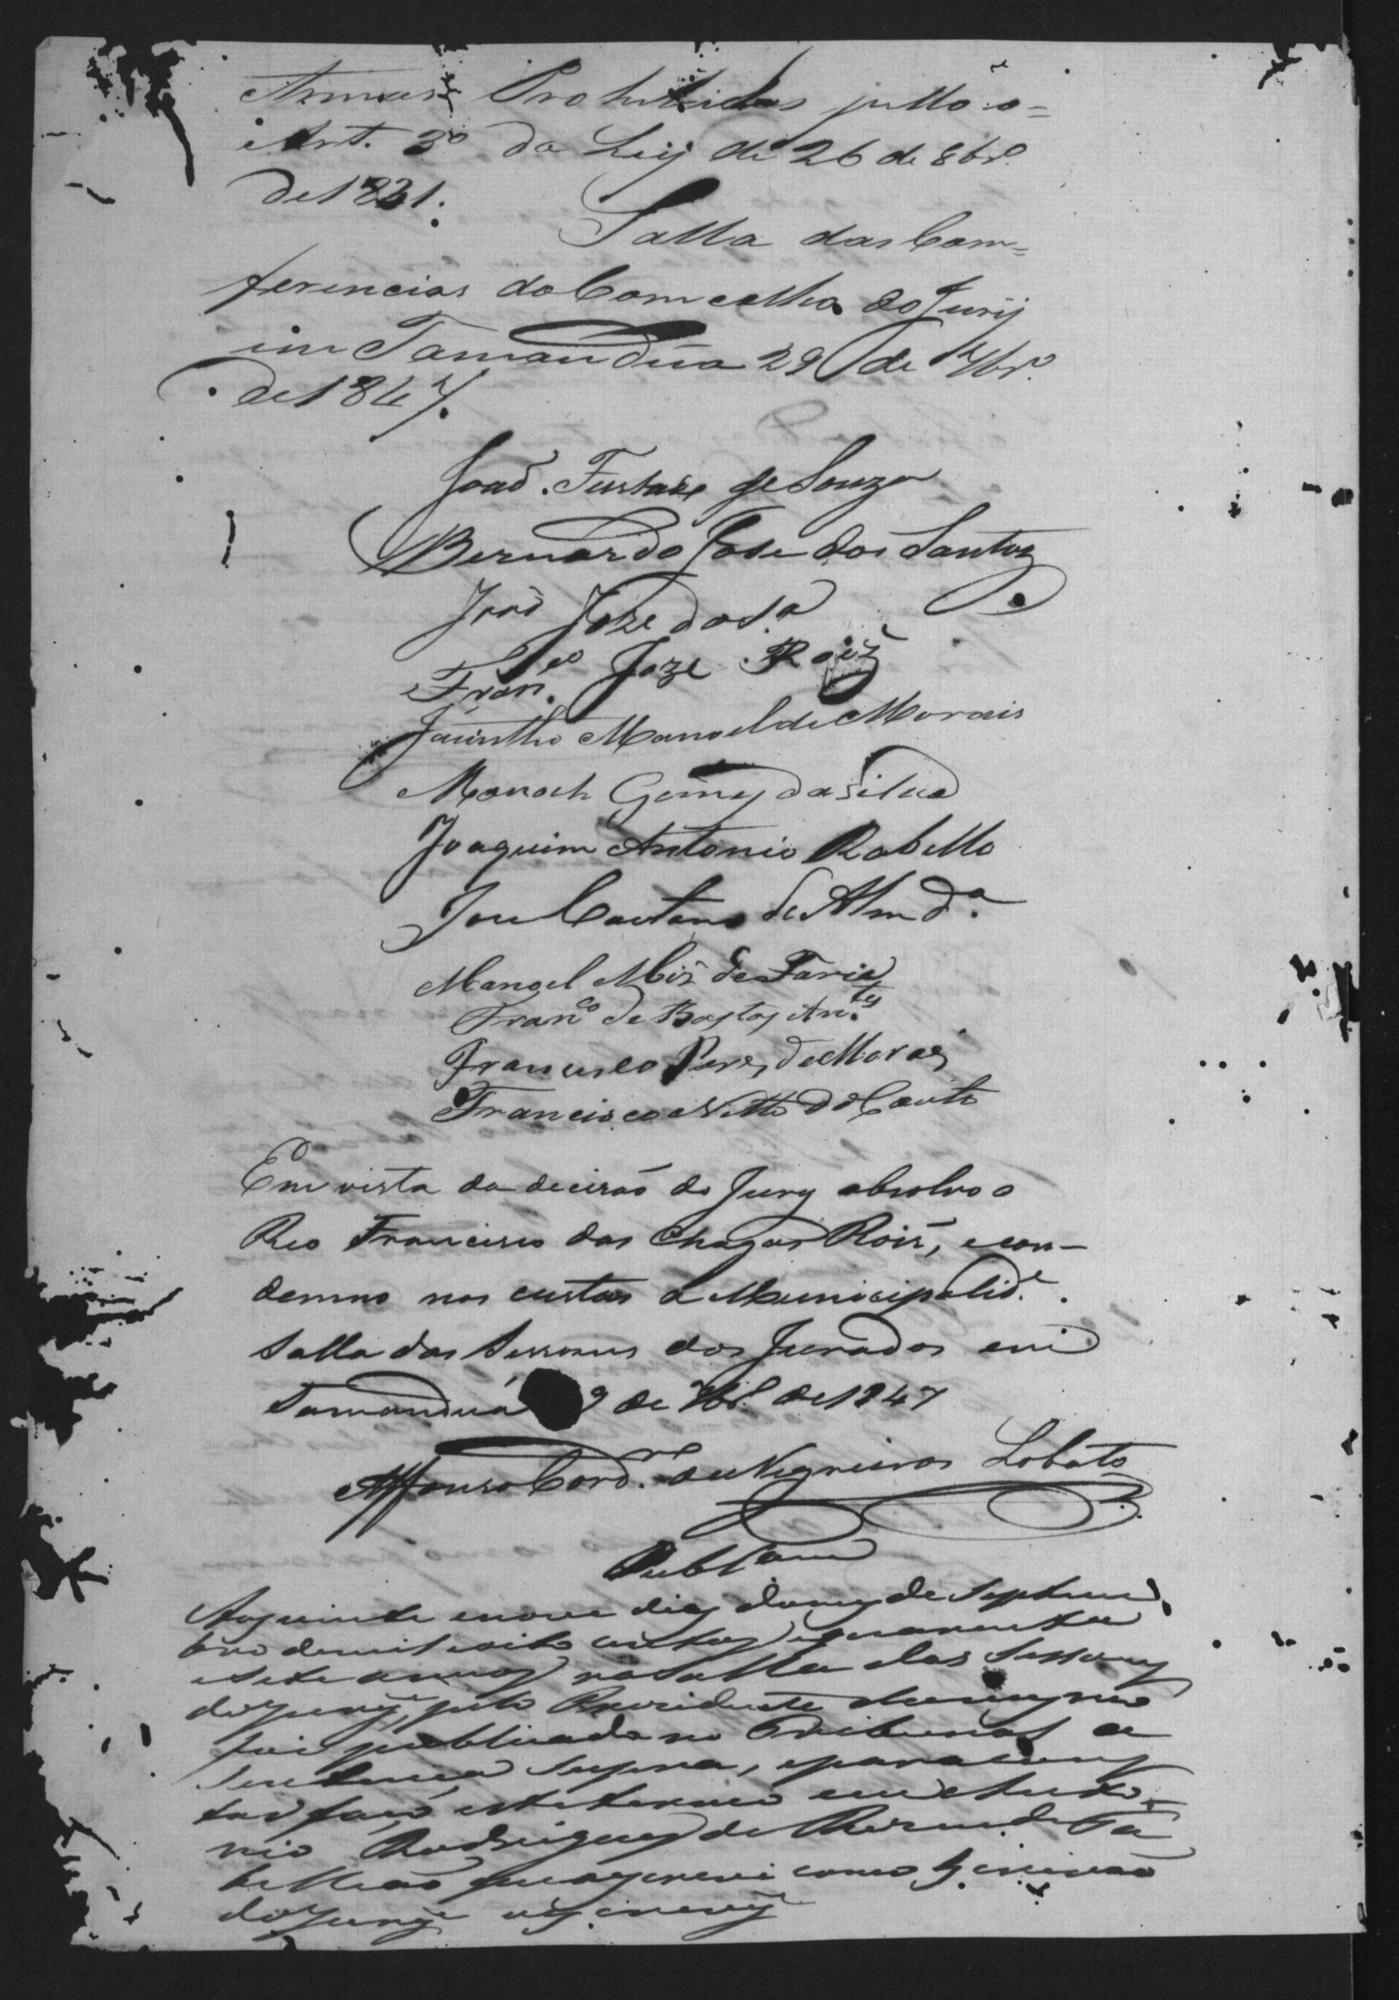 Armas Prohibidas pello o =
Art. 3º da Leij de 26 de 8br.º
de 1831.
Salla das Com=
ferencias do Comcelho do Jurij
im Tamandua 29 de 7br.º
de 1847.
Joaõ Furtado de Souza
Bernardo Jose dos Santos
Joaõ Joze da S.ª
Fran.co Joze Roiz
Jacintho Manoel de Morais
Manoel Gomes da Silva
Joaquim Antonio Rabello
Joze Caetano de Almd.ª
Manoel Miz de Faria
Fran.co de Bastos An.tes
Francisco Pires de Moraes
Francisco Netto do Couto
Em vista da decisaõ do Jury absolvo o
Reo Francisco das Chagas Roiz, e con-
demno nas custas a Municipalid.e.
Salla das Sessoens dos Jurados em
Tamanduá 9 de 7br.º de 1847
Affonso Cord.ro de Negreiros Lobato
Publ.am
Aos vinte e nove dias do mes de Septem
bro de mil oito centos e quarenta
e sete annos na Salla das Sessoens
do Jury, pelo Presidente do mesmo
foi publicada no Tribunal a
Sentença supra, e para cons
tar faço este termo eu Anto-
nio Rodrigues de Ta
belliaõ que escrevi como Escrivaõ
do Jury o escrevy